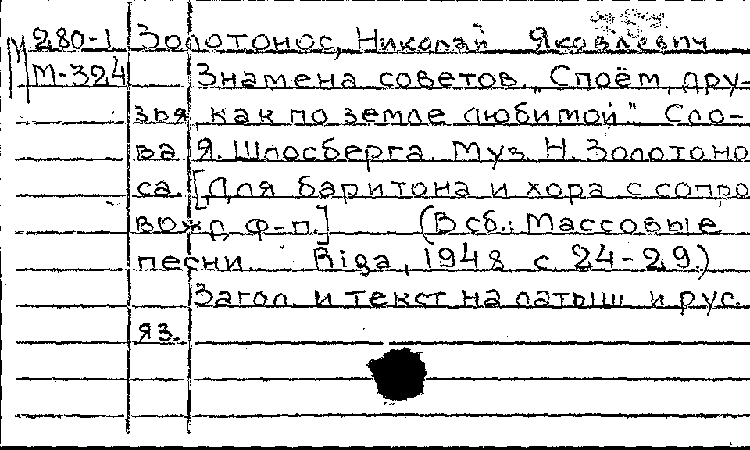 М 280-1 Золотонос, Николай Яковлевич
М-324 Знамена советов. „Споём, дру-
зья, как по земле любимой". Сло-
ва Я. Шлосберга. Муз. Н. Золотоно
са. [Для баритона и хора с сопро
вожд. ф-п.] (В сб.: Массовые
песни. Riga, 1948 с. 24-29.)
Загол. и текст на латыш. и рус.
яз.